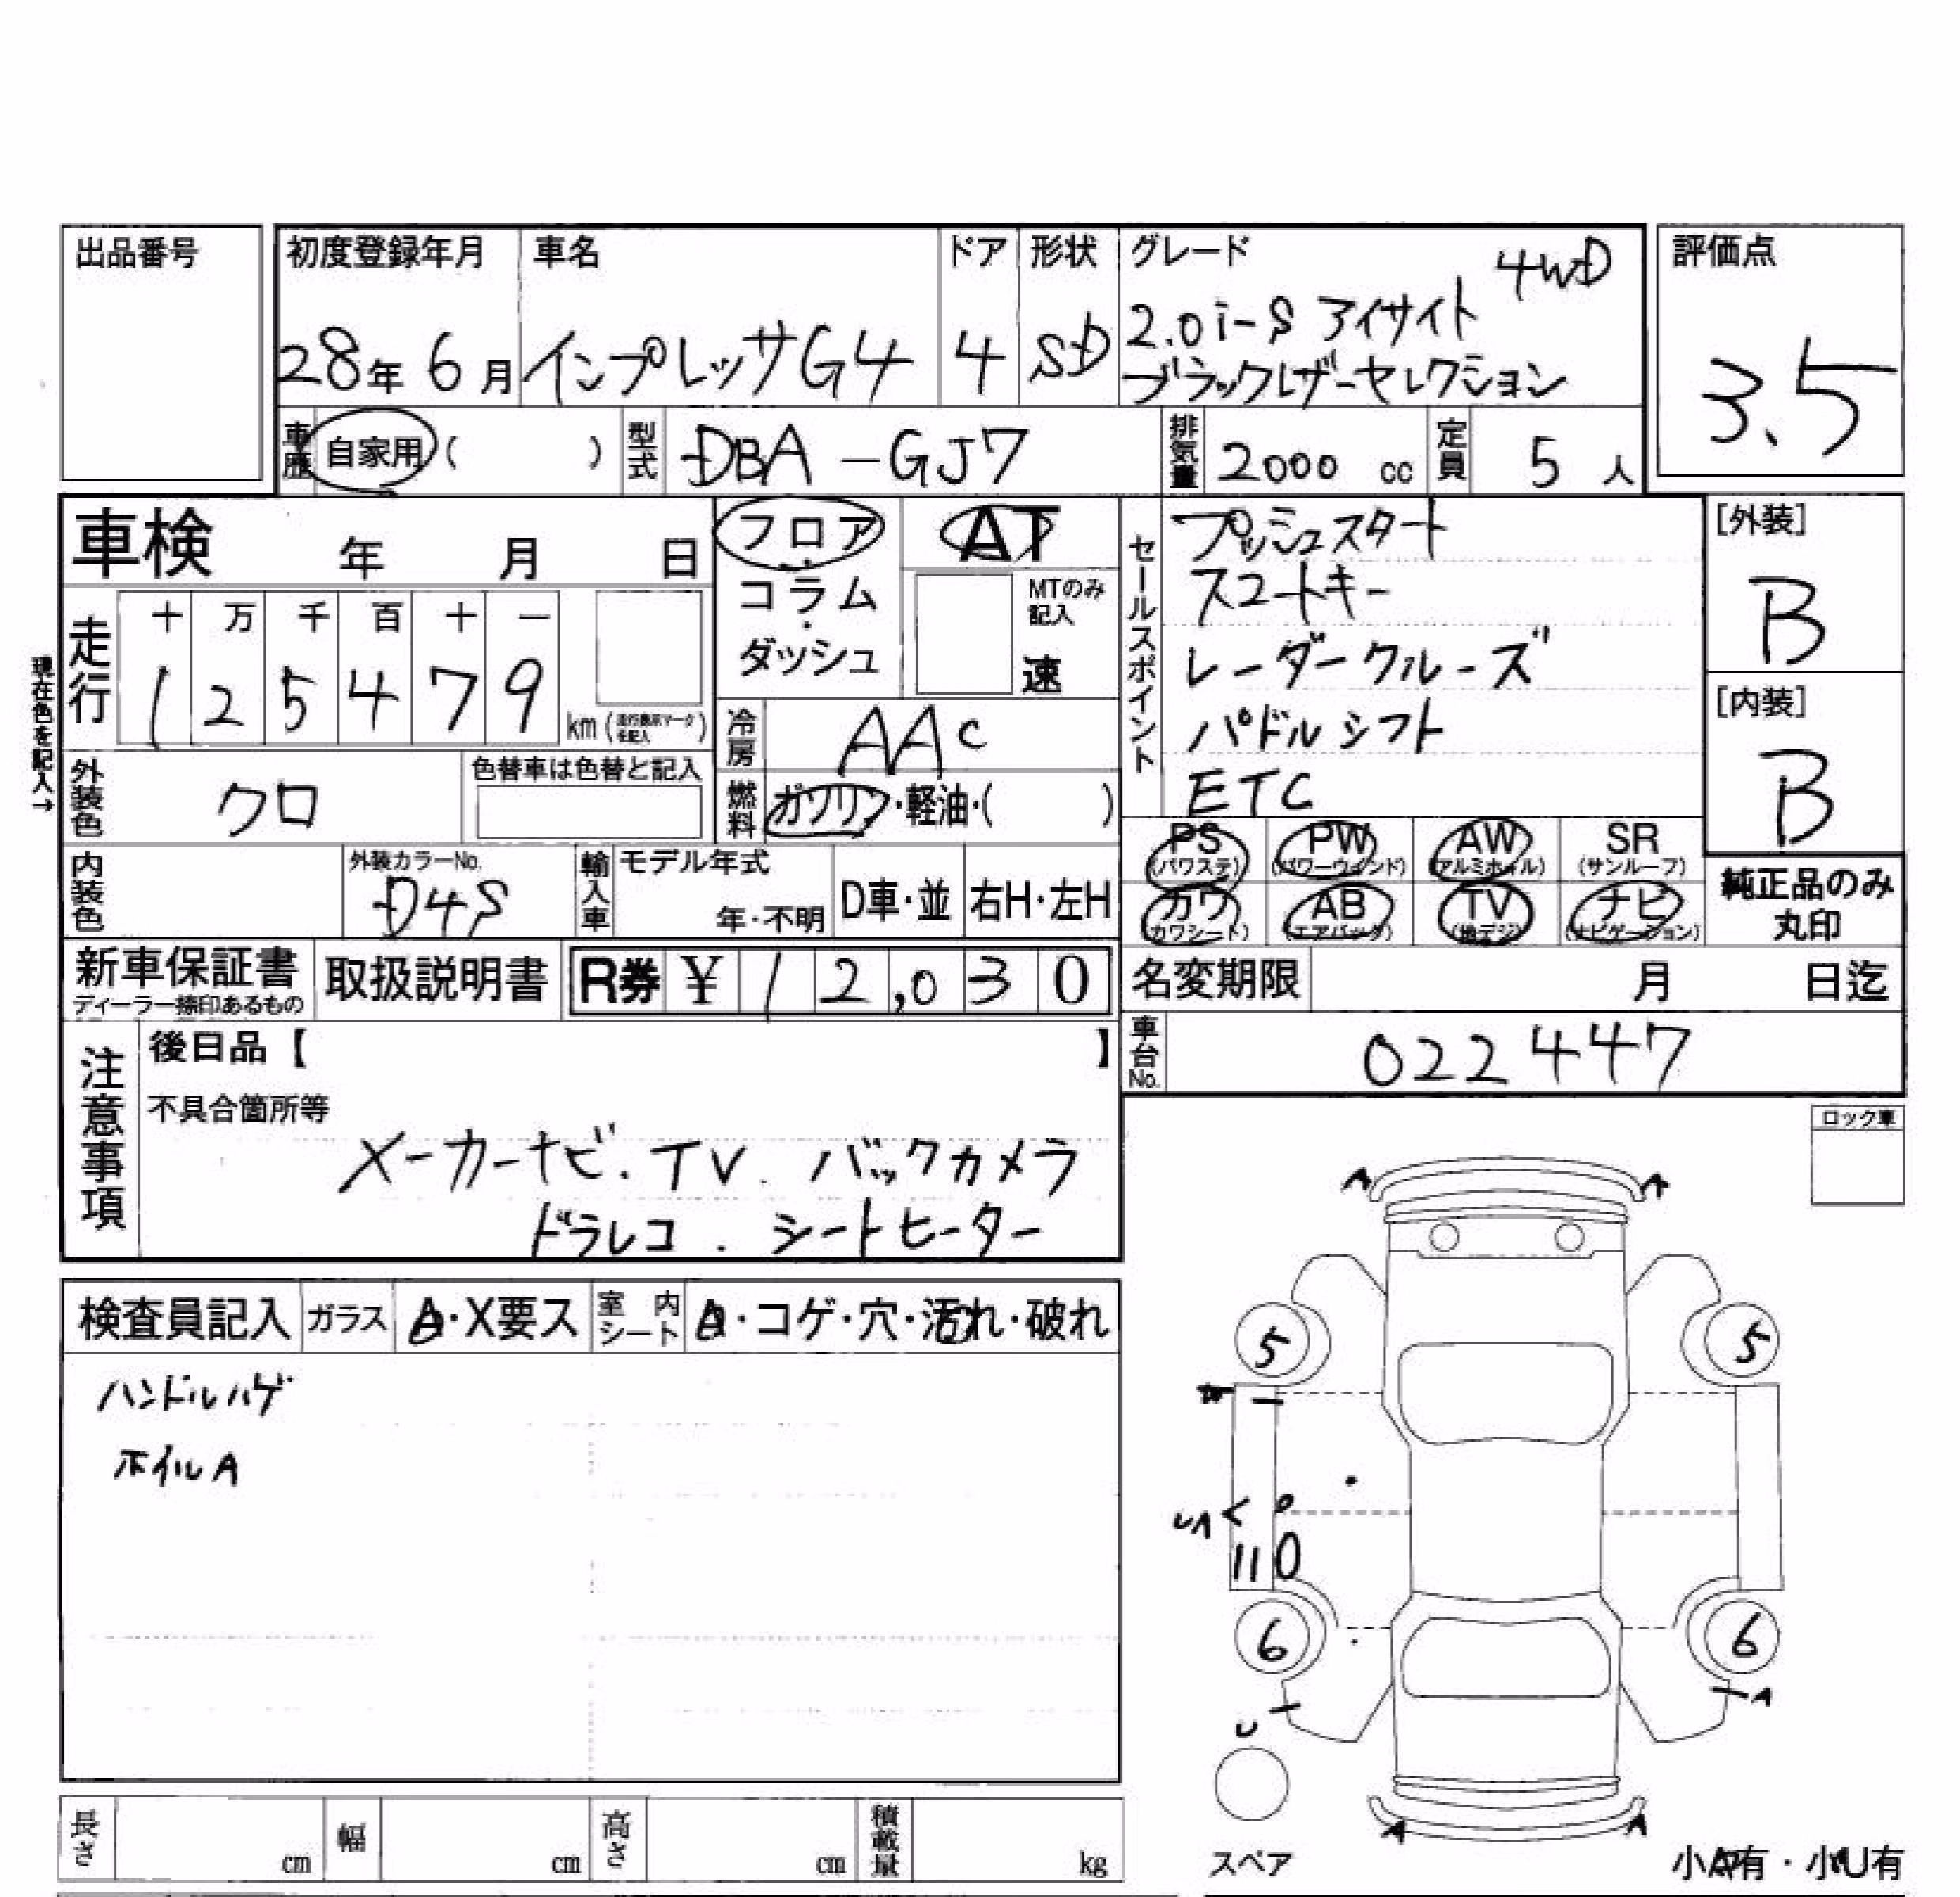 出品番号
初度登録年月
28年 6月
車名
インプレッサG4
ドア
4
形状
SD
グレード
4WD
2.0i-S アイサイト
ブラックレザーセレクション
評価点
3.5
車歴
自家用 ( )
型式
DBA-GJ7
排気量
2000 cc
定員
5 人
車検 年 月 日
フロア・
コラム・
ダッシュ
AT
MTのみ
記入
速
現在色を記入→
走行
十 万 千 百 十 一
1 2 5 4 7 9
km (走行表示マークを記入)
冷房
AAC
燃料
ガソリン・軽油・( )
外装色
クロ
色替車は色替と記入
内装色
外装カラーNo.
D4S
輸入車
モデル年式
年・不明
D車・並
右H・左H
新車保証書
ディーラー捺印あるもの
取扱説明書
R券 ¥ 1 2,0 3 0
セールスポイント
プッシュスタート
スマートキー
レーダークルーズ
パドルシフト
ETC
[外装]
B
[内装]
B
PS
(パワステ)
PW
(パワーウィンド)
AW
(アルミホイル)
SR
(サンルーフ)
カワ
(カワシート)
AB
(エアバッグ)
TV
(地デジ)
ナビ
(ナビゲーション)
純正品のみ
丸印
名変期限 月 日迄
車台No.
022447
注意事項
後日品【 】
不具合箇所等
メーカーナビ.TV.バックカメラ
ドラレコ.シートヒーター
ロック車
検査員記入
ガラス
A・X要ス
室内シート
A・コゲ・穴・汚れ・破れ
ハンドルハゲ
ホイルA
A A
5 5
6 6
U
A
A A
スペア
小A有・小U有
長さ cm
幅 cm
高さ cm
積載量 kg